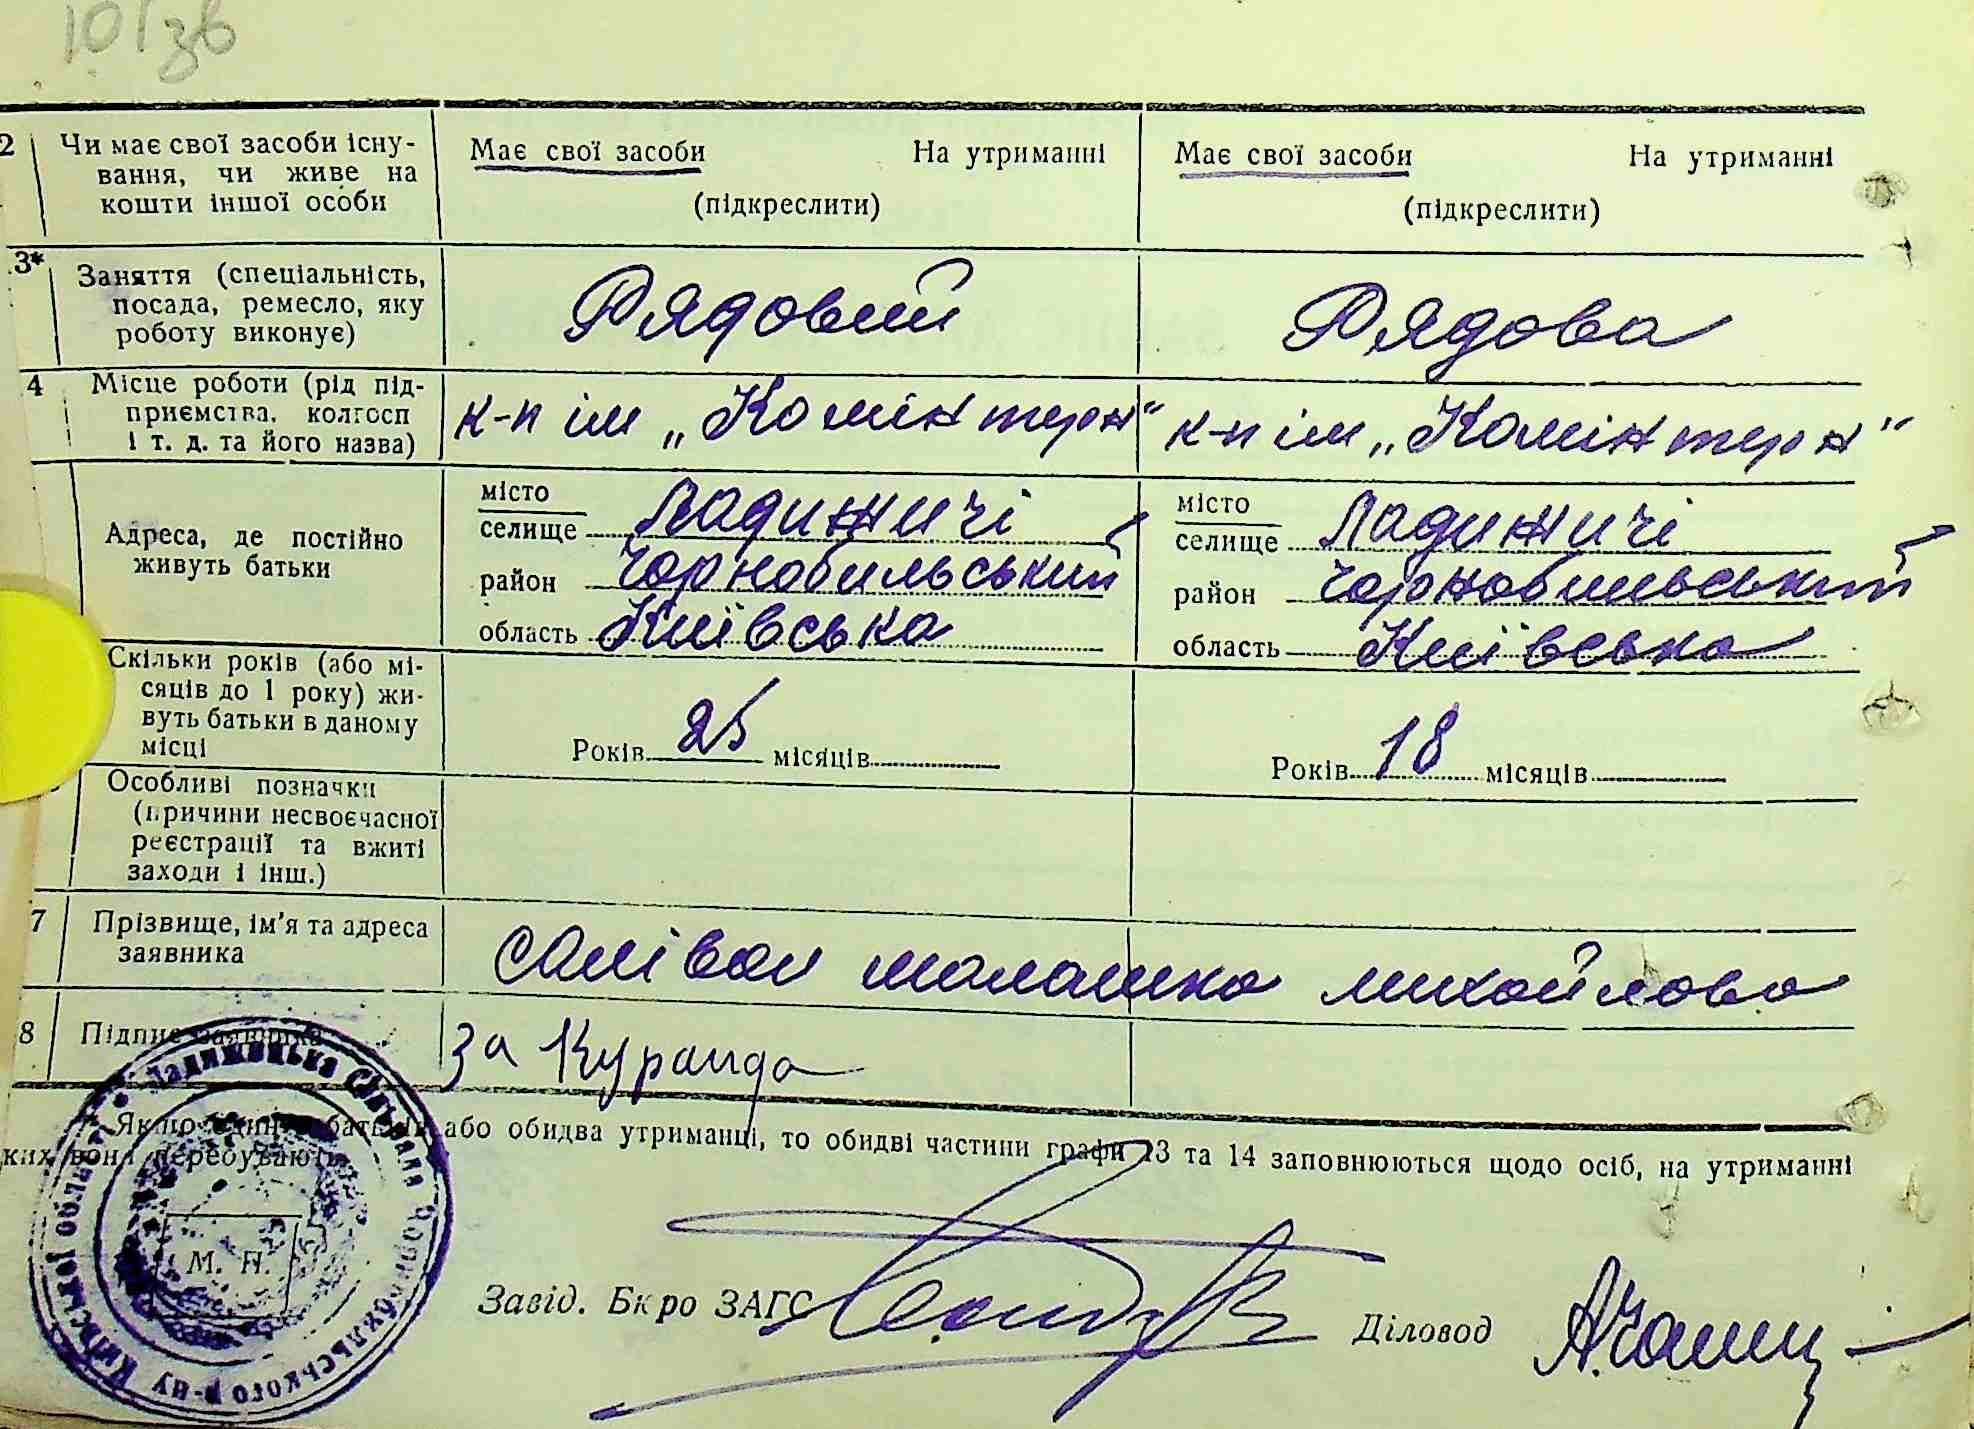 101зв
2 Чи має свої засоби існу-
вання, чи живе на
кошти іншої особи
Має свої засоби На утриманні
(підкреслити)
Має свої засоби На утриманні
(підкреслити)
3* Заняття (спеціальність,
посада, ремесло, яку
роботу виконує)
Рядовий
Рядова
4 Місце роботи (рід під-
приємства, колгосп
і т. д. та його назва)
к-п ім „Комінтерн“
к-п ім „Комінтерн“
Адреса, де постійно
живуть батьки
місто
селище Ладижичі
район Чорнобильський
область Київська
місто
селище Ладижичі
район Чорнобильський
область Київська
Скільки років (або мі-
сяців до 1 року) жи-
вуть батьки в даному
місці
Років 25 місяців
Років 18 місяців
Особливі позначки
(причини несвоєчасної
реєстрації та вжиті
заходи і інш.)
7 Прізвище, ім'я та адреса
заявника
Селівон малашка михайлова
8 Підпис заявника
за Куранда
Якщо один з батьків або обидва утриманці, то обидві частини графи 13 та 14 заповнюються щодо осіб, на утриманні
ких вони перебувають
Ладижицька сільрада Чорнобильського р-ну Київської області
М. П.
Завід. Бюро ЗАГС
Діловод